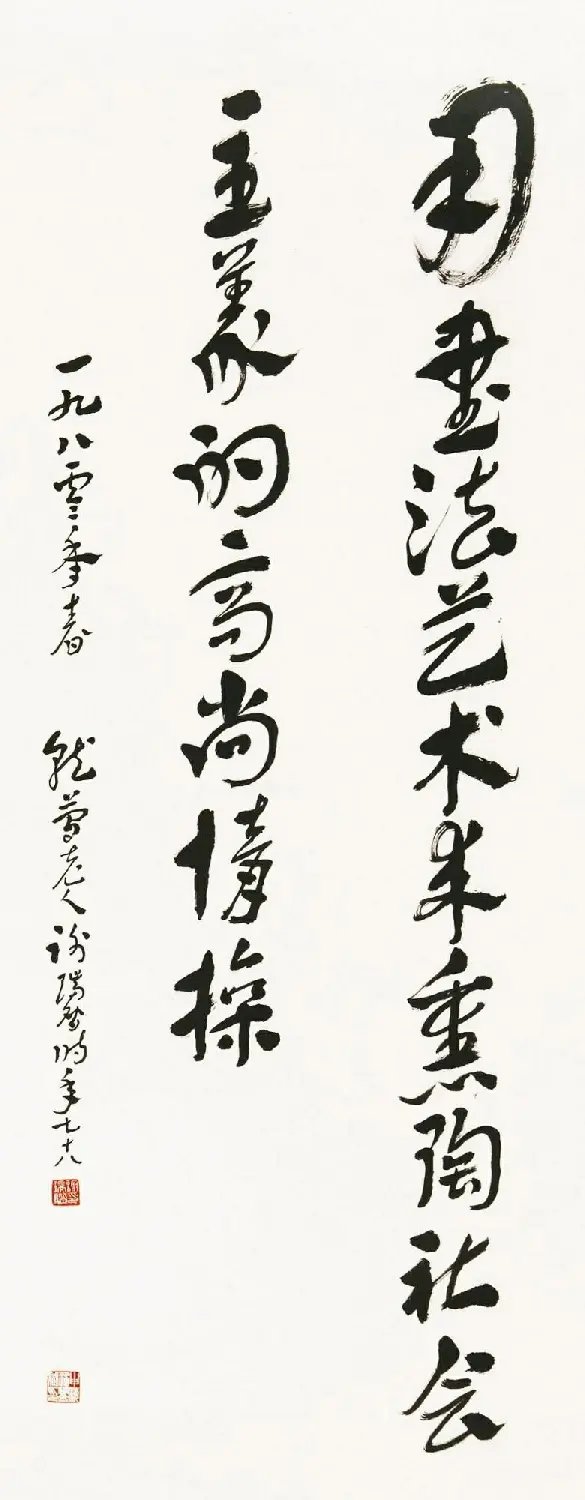 用書法艺术来熏陶社会
主義的高尚情操
一九八零年春 就老人谢瑞階时年七十八